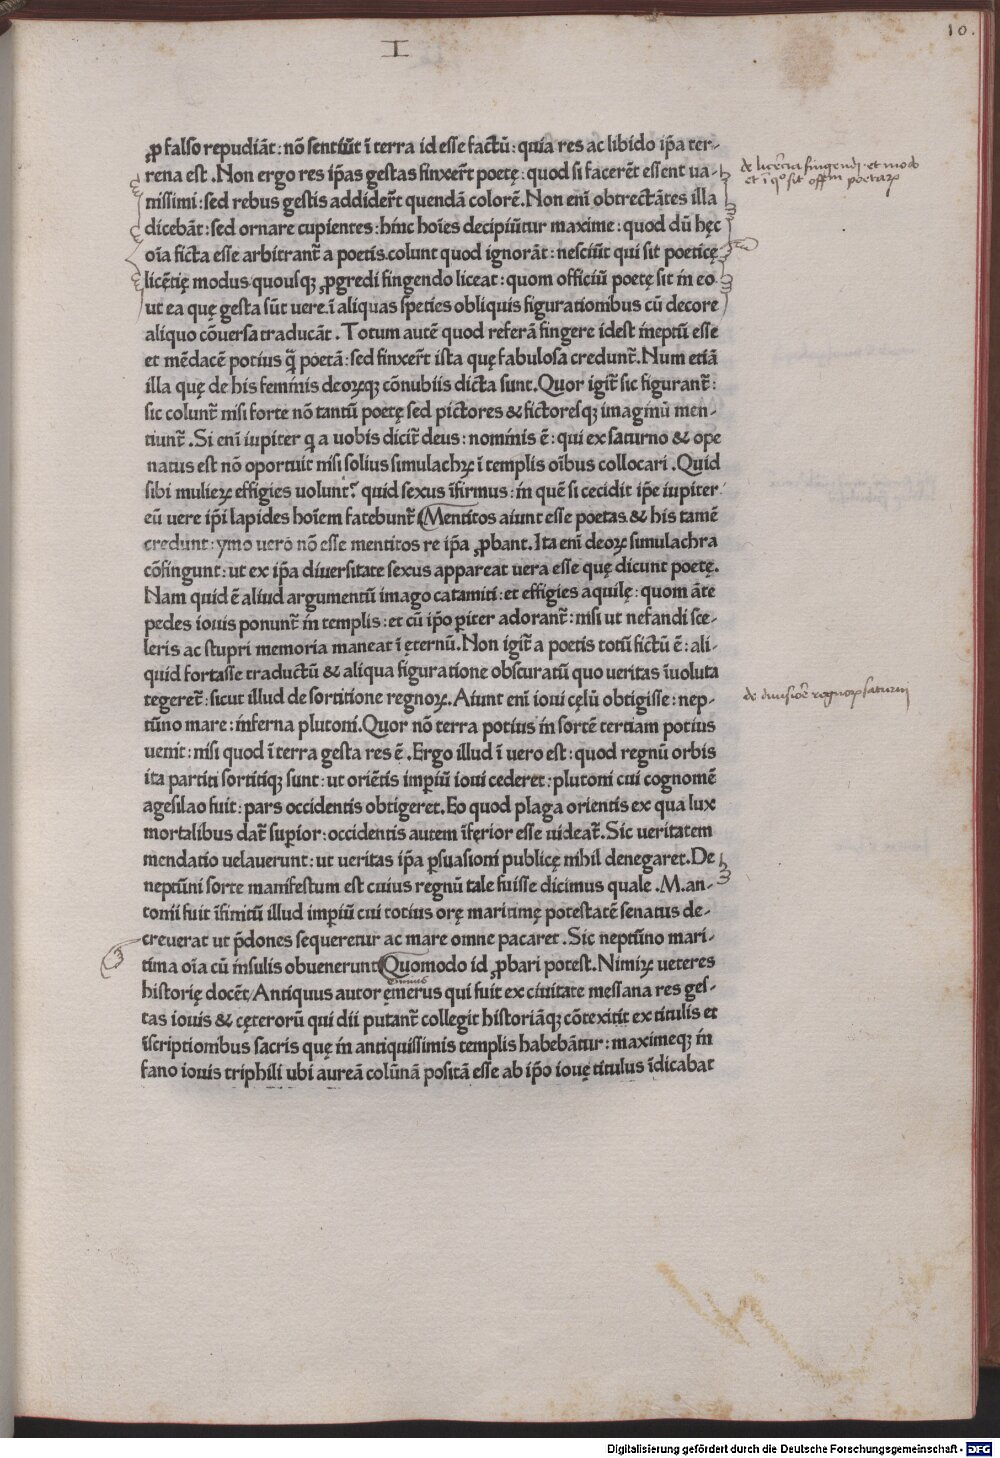 I
10.
ꝓ falso repudiāt: nō sentiūt ī terra id esse factū: quia res ac libido ip̄a ter-
rena est. Non ergo res ip̄as gestas finxer̄t poetę: quod si facerēt essent ua-
nissimi: sed rebus gestis addider̄t quendā colorē. Non eni obtrectātes illa
dicebāt: sed ornare cupientes: hinc hoīes decipiūtur maxime: quod dū hęc
oīa ficta esse arbitrant̄ a poetis. colunt quod ignorāt: nesciūt qui sit poeticę
licętię modus quousqꝫ ꝓgredi fingendo liceat: quom officiū poetę sit in eo
ut ea quę gesta sūt uere. ī aliquas sp̄eties obliquis figurationibus cū decore
aliquo cōuersa traducāt. Totum autē quod referā fingere idest ineptū esse
et mēdacē potius q̄ poetā: sed finxer̄t ista quę fabulosa credunt̄. Num etiā
illa quę de his feminis deoꝝqꝫ cōnubiis dicta sunt. Quor igit̄ sic figurant̄:
sic colunt̄ nisi forte nō tantū poetę sed pictores & fictoresqꝫ imaginū men-
tiunt̄. Si eni iupiter q a uobis dicit̄ deus: nominis ē: qui ex saturno & ope
natus est nō oportuit nisi solius simulachꝝ ī templis oībus collocari. Quid
sibi mulieꝝ effigies uolunt? quid sexus īfirmus: in quē si cecidit ip̄e iupiter
eū uere ip̄i lapides hoīem fatebunt̄ Mentitos aiunt esse poetas. & his tamē
credunt: ymo uero nō esse mentitos re ip̄a ꝓbant. Ita eni deoꝝ simulachra
cōfingunt: ut ex ip̄a diuersitate sexus appareat uera esse quę dicunt poetę.
Nam quid ē aliud argumentū imago catamiti: et effigies aquilę: quom āte
pedes iouis ponunt̄ in templis: et cū ip̄o piter adorant̄: nisi ut nefandi sce-
leris ac stupri memoria maneat ī ęternū. Non igit̄ a poetis totū fictū ē: ali-
quid fortasse traductū & aliqua figuratione obscuratū quo ueritas īuoluta
tegeret̄: sicut illud de sortitione regnoꝝ. Aiunt eni ioui cęlū obtigisse: nep-
tūno mare: inferna plutoni. Quor nō terra potius in sortē tertiam potius
uenit: nisi quod ī terra gesta res ē. Ergo illud ī uero est: quod regnū orbis
ita partiti sortitiqꝫ sunt: ut oriētis impiū ioui cederet: plutoni cui cognomē
agesilao fuit: pars occidentis obtigeret. Eo quod plaga orientis ex qua lux
mortalibus dat̄ supior: occidentis autem īferior esse uideat̄. Sic ueritatem
mendatio uelauerunt: ut ueritas ip̄a psuasioni publicę nihil denegaret. De
neptūni sorte manifestum est cuius regnū tale fuisse dicimus quale. M. an-
tonii fuit īfinitū illud impiū cui totius orę maritimę potestatē senatus de-
creuerat ut p̄dones sequeretur ac mare omne pacaret. Sic neptūno mari-
tima oīa cū insulis obuenerunt Quomodo id ꝓbari potest. Nimiꝝ ueteres
historię docēt/ Antiquus autor ęmerus qui fuit ex ciuitate messana res ges-
tas iouis & cęterorū qui dii putant̄ collegit historiāqꝫ cōtexitit ex titulis et
īscriptionibus sacris quę in antiquissimis templis habebātur: maximeqꝫ in
fano iouis triphili ubi aureā colūnā positā esse ab ip̄o iouę titulus īdicabat
de licētia fingendi. et modo
et ī qo sit offm poetaꝝ
de diuisiōe regnoꝝ saturni
Digitalisierung gefördert durch die Deutsche Forschungsgemeinschaft - DFG